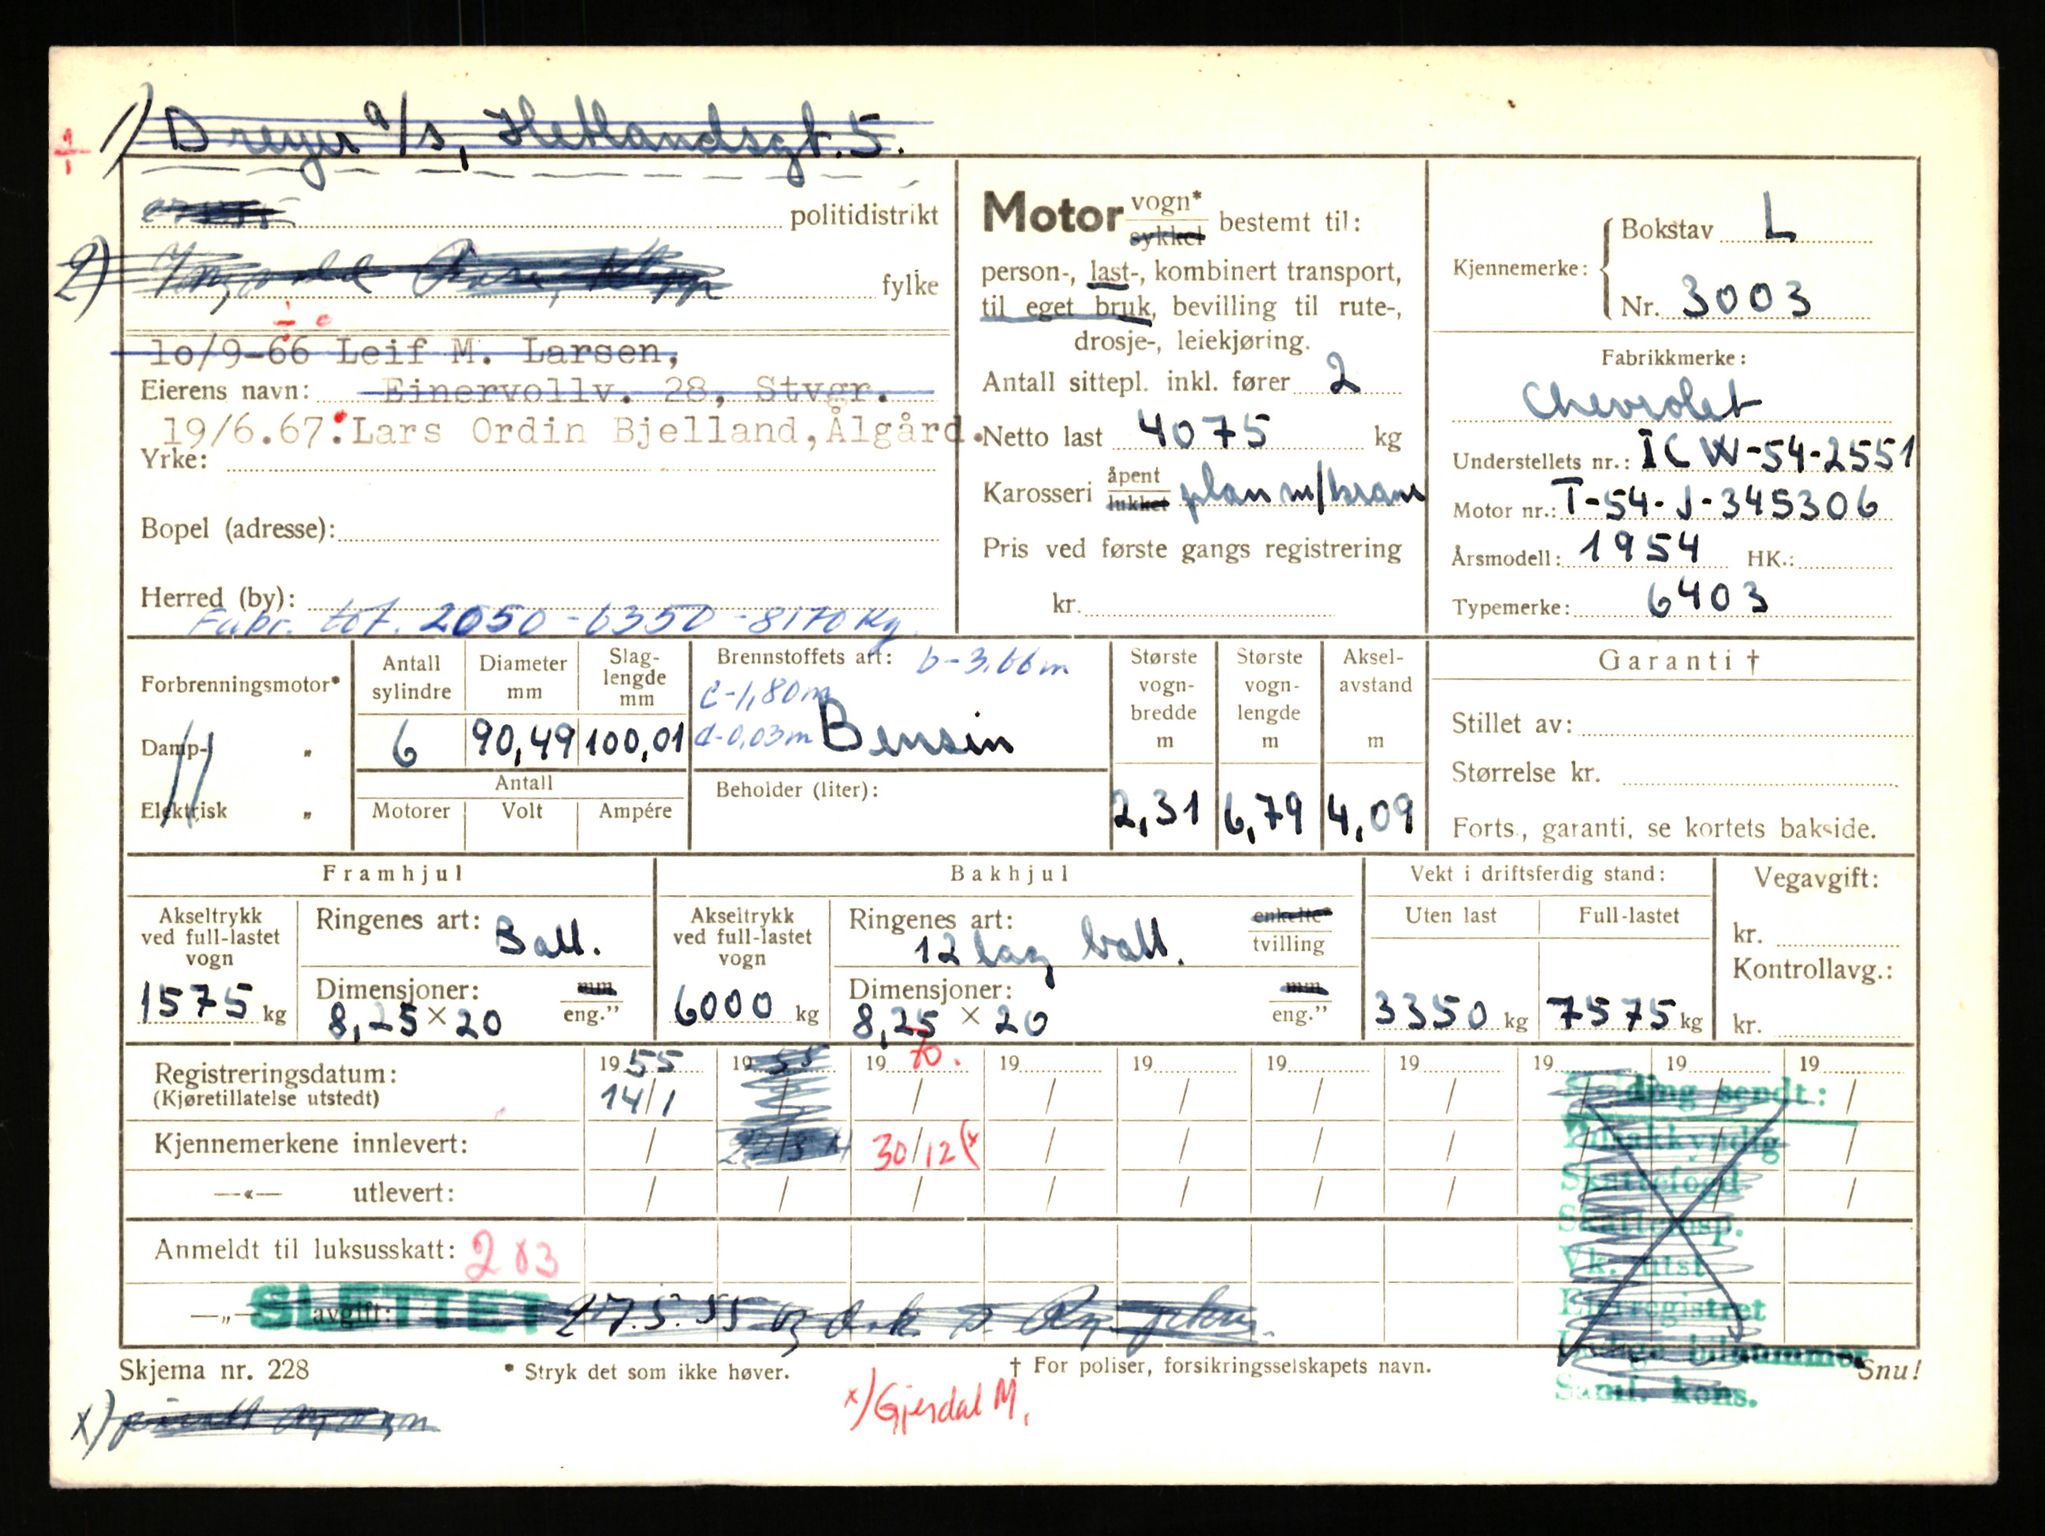 1) Dreyer a/s, Hetlandsgt. 5.
politidistrikt
2)
fylke
10/9-66 Leif M. Larsen,
Eierens navn: Einervollv. 28, Stvgr.
19/6.67: Lars Ordin Bjelland, Ålgård.
Yrke:
Bopel (adresse):
Herred (by):
Fabr. tot. 2050 - 6350 - 8170 Kg.
Motor vogn* sykkel bestemt til:
person-, last-, kombinert transport,
til eget bruk, bevilling til rute-,
drosje-, leiekjøring.
Antall sittepl. inkl. fører 2
Netto last 4075 kg
Karosseri åpent lukket plan m/kran
Pris ved første gangs registrering
kr.
Kjennemerke: Bokstav L
Nr. 3003
Fabrikkmerke:
Chevrolet
Understellets nr.: ICW-54-2551
Motor nr.: T-54-J-345306
Årsmodell: 1954 HK.:
Typemerke: 6403
Forbrenningsmotor*
Damp- "
Elektrisk "
Antall sylindre
6
Diameter mm
90,49
Slaglengde mm
100,01
Antall
Motorer Volt Ampére
Brennstoffets art: b-3.66m
c-1,80m
d-0,03m Bensin
Beholder (liter):
Største vognbredde m
2,31
Største vognlengde m
6,79
Akselavstand m
4,09
Garanti †
Stillet av:
Størrelse kr.
Forts., garanti, se kortets bakside.
Framhjul
Akseltrykk ved full-lastet vogn
1575 kg
Ringenes art: Ball.
Dimensjoner: mm eng."
8,25 × 20
Bakhjul
Akseltrykk ved full-lastet vogn
6000 kg
Ringenes art: enkelte* tvilling
12 lag ball.
Dimensjoner: mm eng."
8,25 × 20
Vekt i driftsferdig stand:
Uten last Full-lastet
3350 kg 7575 kg
Vegavgift:
kr.
Kontrollavg.:
kr.
Registreringsdatum: 1955 1955 1970. 19 19 19 19 19 19 19
(Kjøretillatelse utstedt) 14/1 / / / / / / / / /
Kjennemerkene innlevert: / 30/12 (x / / / / / / /
—«— utlevert: / / / / / / / / /
Anmeldt til luksusskatt: 203
—„— avgift: SLETTET 27.5.55
Melding sendt:
Bilsakkyndig
Skattefogd
Skatteinsp.
Vk.
registret
Ledige bilnummer
Saml. kons.
Skjema nr. 228 * Stryk det som ikke høver. † For poliser, forsikringsselskapets navn. Snu!
x)
x) Gjesdal M.